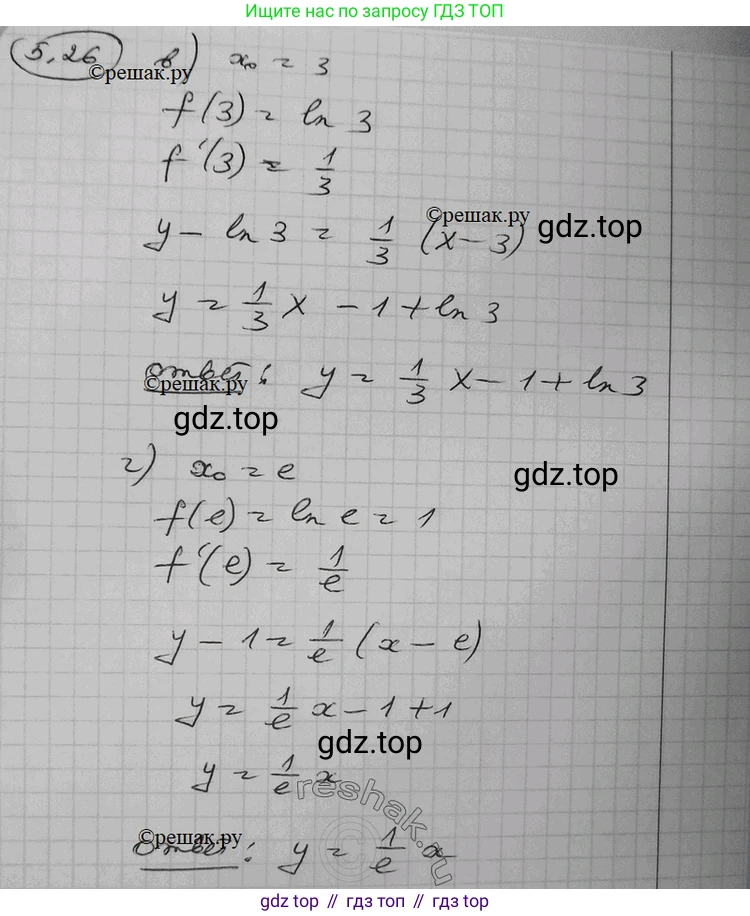 Ищите нас по запросу ГДЗ ТОП
5.26 в) x₀ = 3
©решак.ру
f(3) = ln 3
f'(3) = 1/3
©решак.ру
y - ln 3 = 1/3 (x - 3)
gdz.top
y = 1/3 x - 1 + ln 3
Ответ: y = 1/3 x - 1 + ln 3
©решак.ру
gdz.top
г) x₀ = e
gdz.top
f(e) = ln e = 1
f'(e) = 1/e
y - 1 = 1/e (x - e)
y = 1/e x - 1 + 1
gdz.top
y = 1/e x
reshak.ru
©решак.ру
Ответ: y = 1/e x
gdz.top // гдз.топ // gdz.top